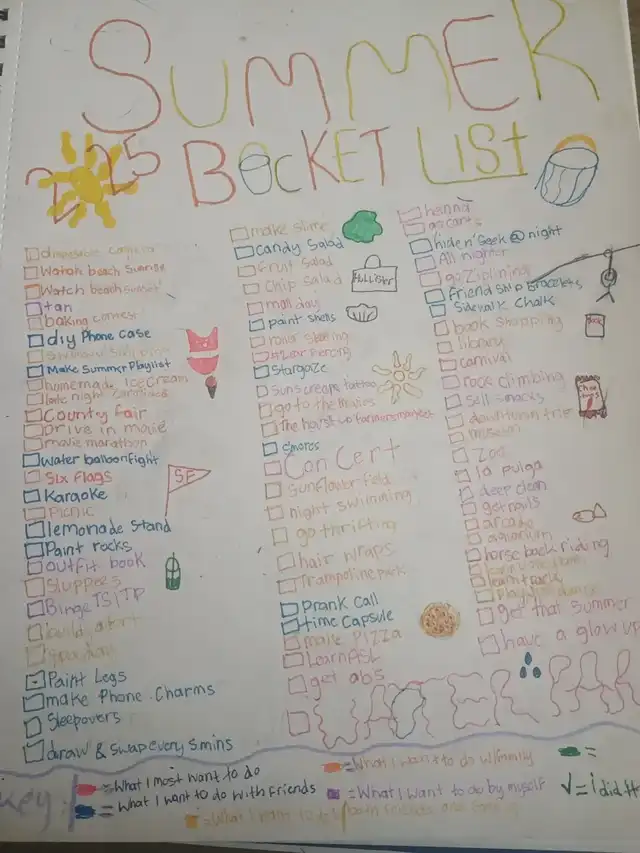 SUMMER
2025
BUCKET LIST
disposable camera
Watch beach Sunrise
Watch beach sunset
tan
baking contest
diy Phone case
Make Summer Playlist
homemade Ice Cream
late night
County fair
Drive in movie
movie marathon
Water balloon fight
Six Flags
SF
Karaoke
PICNIC
lemonade Stand
Paint rocks
outfit book
Sluppees
Binge TSITP
build a fort
Spa day
Paint Legs
make Phone Charms
Sleepovers
draw & swap every 5 mins
make slime
Candy Salad
Fruit Salad
Chip Salad
HOLLISTER
mall day
paint shells
roller skating
Stargaze
sunscreen tattoo
go to the movies
S'mores
Concert
Sunflower field
night swimming
go thrifting
hair wraps
Trampoline park
Prank Call
time capsule
make PIZZA
Learn ASL
get abs
WATER PARK
henna
hide n' seek @ night
All nighter
go Ziplining
Friendship Bracelets
Sidewalk Chalk
book shopping
library
carnival
rock climbing
sell snacks
museum
ZOO
la pulga
deep clean
get nails
arcade
aquarium
horse back riding
get that summer
have a glow up
key:
= What I most want to do
= What I want to do with friends
= What I want to do w/family
= What I want to do by myself
= What I want to do w/both friends and family
=
√ = i did it